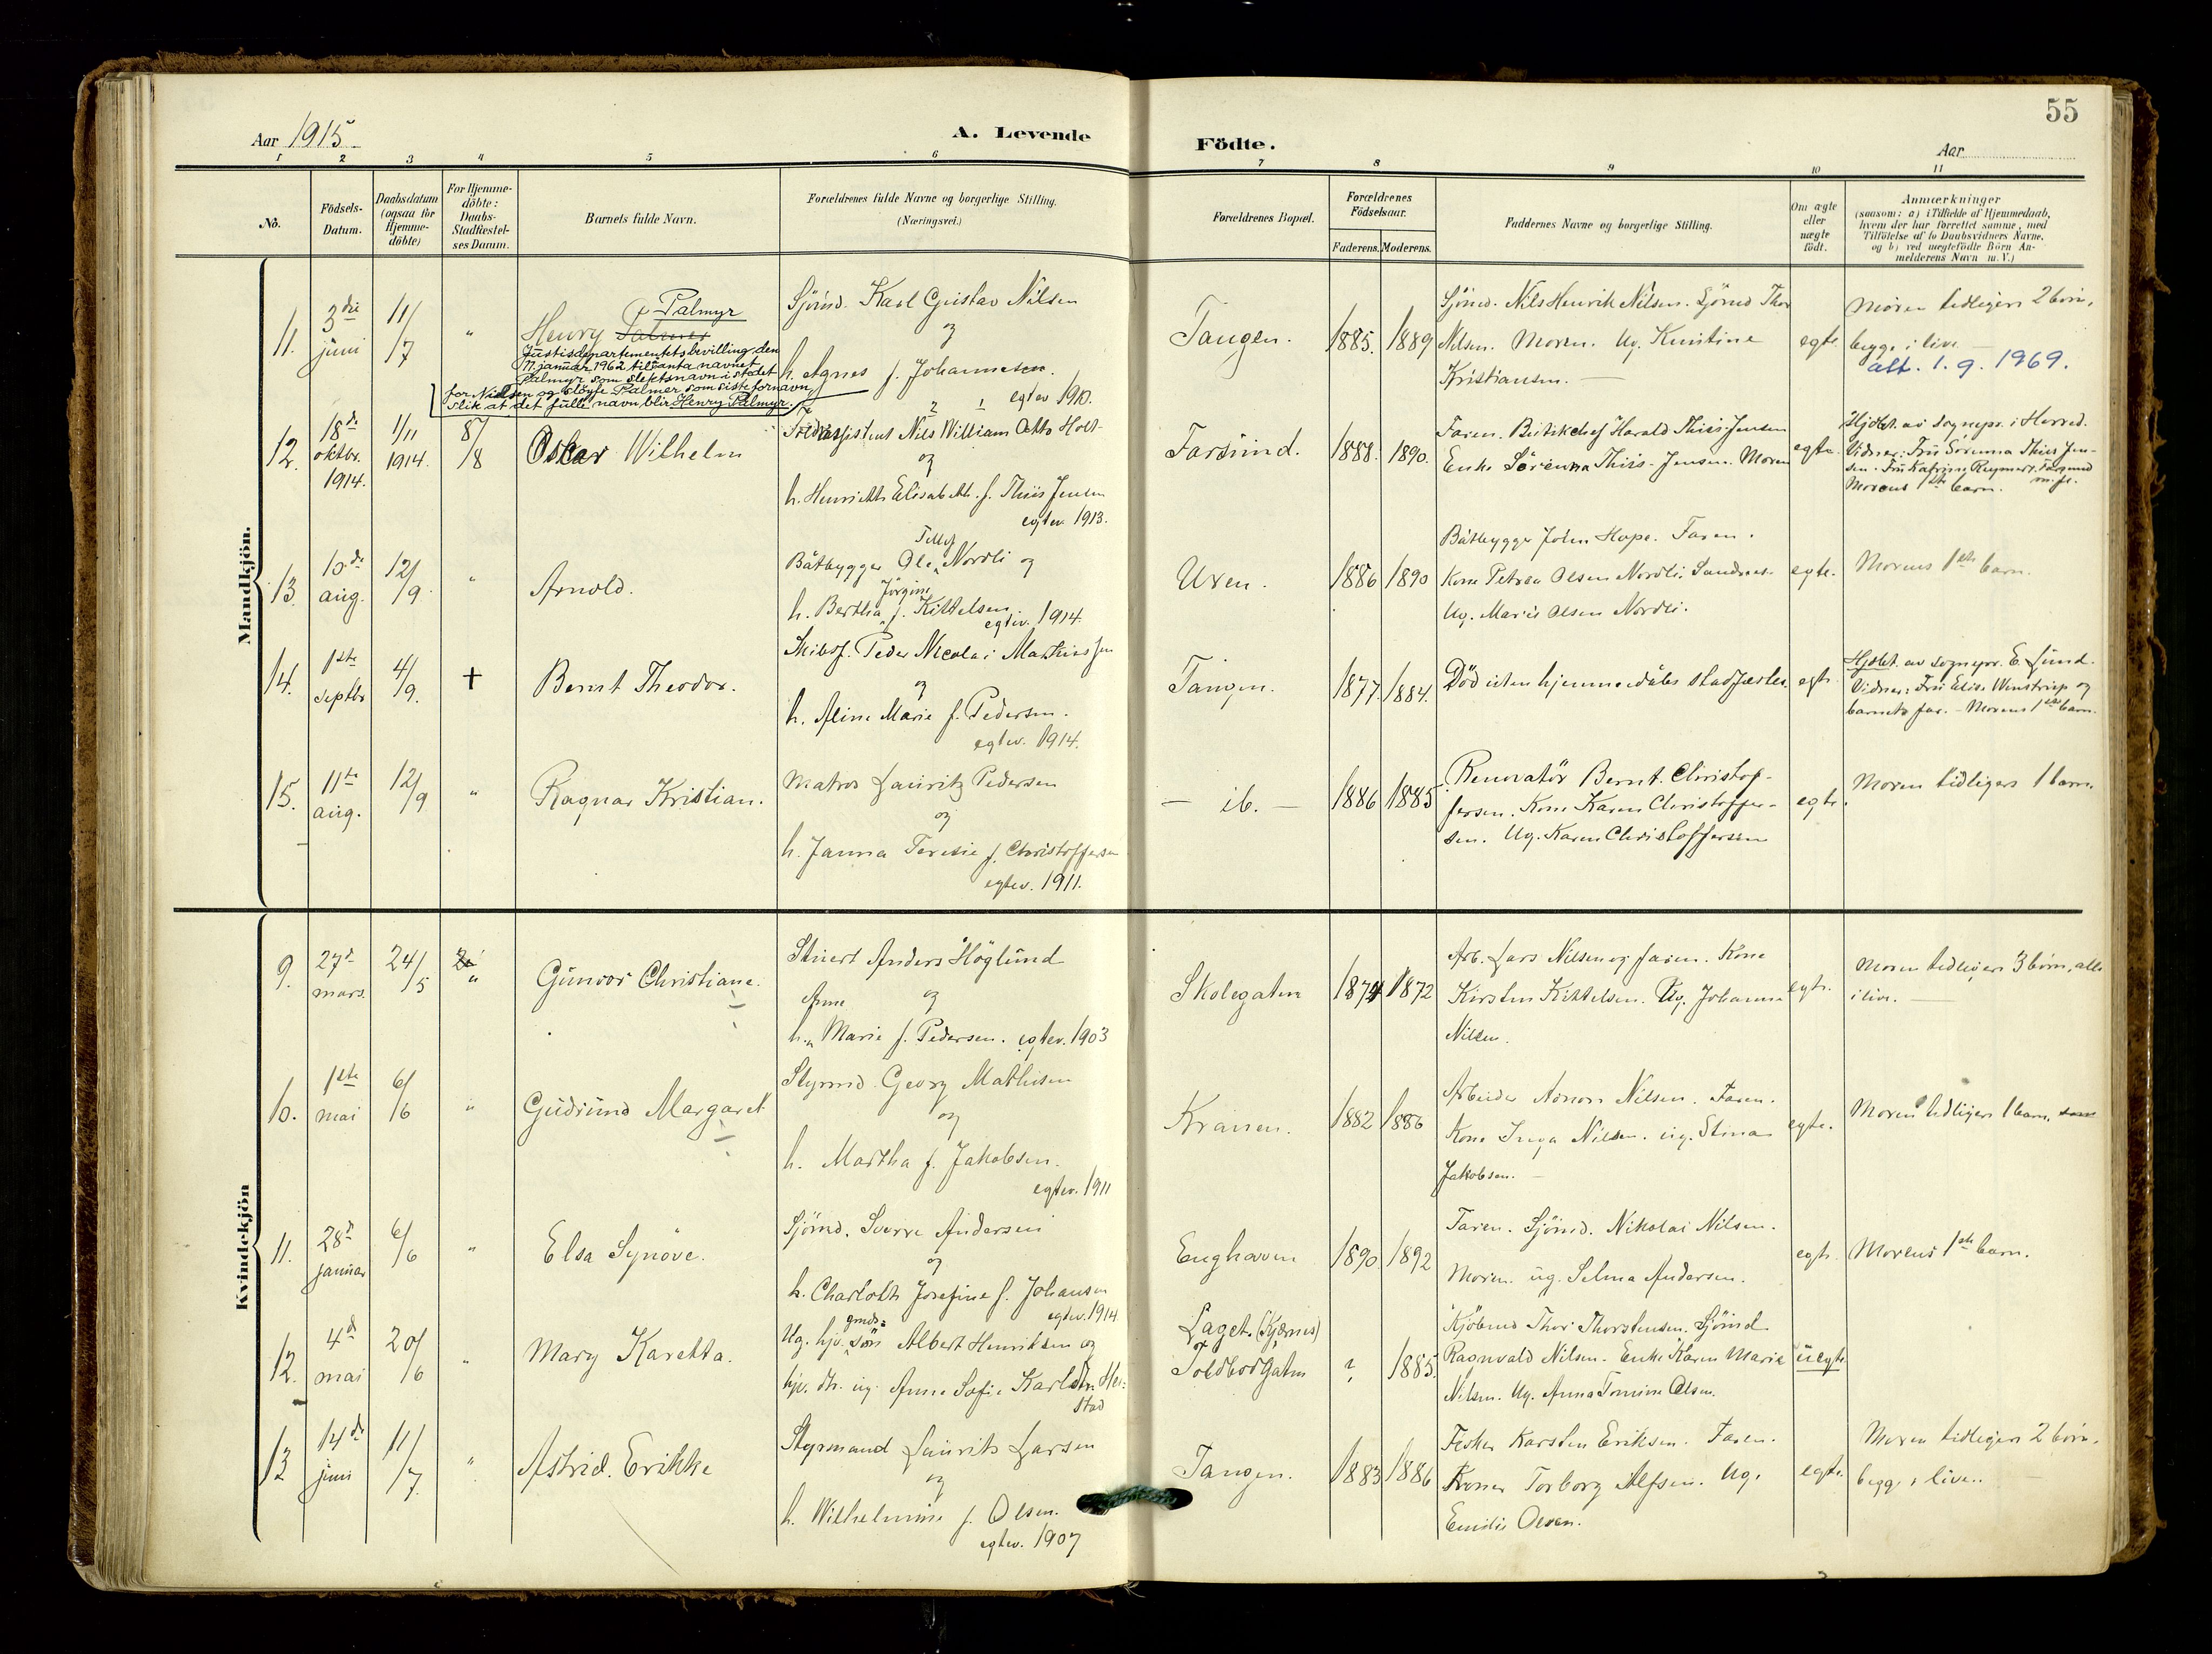 55
Aar 1915
A. Levende Födte.
Aar
1 2 3 4 5 6 7 8 9 10 11
No.
Födsels-Datum.
Daabsdatum (ogsaa for Hjemme-döbte)
For Hjemme-döbte: Daabs-Stadfæstel-ses Datum.
Barnets fulde Navn.
Forældrenes fulde Navne og borgerlige Stilling.
(Næringsvei.)
Forældrenes Bopæl.
Forældrenes Födselsaar.
Faderens. Moderens.
Faddernes Navne og borgerlige Stilling.
Om ægte eller uægte födt.
Anmærkninger
(saasom: a) i Tilfælde af Hjemmedaab,
hvem der har forrettet samme, med
Tilföielse af to Daabsvidners Navne,
og b) ved uægtefödte Börn An-
melderens Navn m. V.)
Mandkjön.
11. 3die juni
11/7
"
Palmyr
Henry Palmer
Justisdepartementets bevilling den
17. januar 1962 til å anta navnet
Palmyr som slektsnavn i stedet
for Nielsen og sløyfe Palmer som siste fornavn
slik at det fulle navn blir Henry Palmyr.
Sjömd. Karl Gustav Nilsen
og
h. Agnes f. Johannesen.
egtev 1910.
Tangen.
1885. 1889
Sjömd. Nils Henrik Nilsen. Sjömd Thor
Nilsen. Moren. Ug. Kristine
Kristiansen.
egte.
Moren tidligere 2 börn,
begge i live.
att. 1. 9. 1969.
12. 18de oktbr. 1914.
1/11 1914.
8/8
Oskar Wilhelm
2 1
Nils William Otto Holt
og
h. Henriette Elisabeth f. Thiis Jensen
egtev. 1913.
Farsund.
1888. 1890.
Faren. Butikchef Harald Thiis Jensen
Enke Sörenna Thiis-Jensen. Moren
egte.
Hjdbt. av sognepr. i Herred.
Vidner: Fru Sörenna Thiis Jen-
sen. Fru Katrine Reymert. Farsund
Morens 1ste barn.
13. 10de aug.
12/9
"
Arnold.
Tellef
Båtbygger Ole Nordli og
Jörgine
h. Bertha f. Kittelsen.
egtev. 1914.
Uren.
1886 1890
Båtbygger John Hope. Faren.
Kone Petrea Olsen Nordli, Sandnes.
Ug. Marie Olsen Nordli.
egte.
Morens 1ste barn.
14. 1ste septbr
4/9.
+
Bernt Theodor.
Skibsf. Peder Nicolai Mathiassen
og
h. Aline Marie f. Pedersen.
egtev. 1914.
Tangen.
1877. 1884.
Död uten hjemmedåbs stadfæstelse
egte
Hjdbt. av sognepr. E. Lund.
Vidner: Fru Elise Winstrup og
barnets far. - Morens 1ste barn.
15. 11te aug.
12/9
"
Ragnar Kristian.
Matros Lauritz Pedersen
og
h. Janna Teresie f. Christoffersen
egtev. 1911.
— ib. —
1886 1885
Renovatör Bernt Christof-
fersen. Kone Karen Christoffer-
sen. Ug. Karen Christoffersen
egte.
Moren tidligere 1 barn.
Kvindekjön
9. 27de mars.
24/5
"
Gunvor Christiane.
Stuert Anders Höglund
og
Anne
h. Marie f. Pedersen. egtev. 1903
Skolegaten
1874 1872
Arb. Lars Nilsen og faren. Kone
Kirsten Kittelsen. Ug. Johanne
Nilsen.
egte.
Moren tidligere 3 börn, alle
i live.
10. 1ste mai
6/6
"
Gudrund Margaret
Styrmd. Georg Mathisen
og
h. Martha f. Jakobsen.
egtev. 1911
Kranen.
1882 1886
Arbeider Admon Nilsen. Faren.
Kone Inga Nilsen. ug. Stina
Jakobsen.
egte.
Moren tidligere 1 barn.
11. 28de januar
6/6
"
Elsa Synöve.
Sjömd. Sverre Andersen
og
h. Charlotte Josefine f. Johansen
egtev. 1914
Enghaven
1890 1892
Faren. Sjömd. Nikolai Nilsen.
Moren. ug. Selma Andersen.
egte.
Morens 1ste barn.
12. 4de mai
20/6
"
Mary Karetta.
gmds.
Ug. hjv. sön Albert Henriksen og
hjv. dtr. ug. Anne Sofie Karlsdtr. Hei-
stad
Laget. (Kjærnes)
Toldbodgaten
? 1885.
Kjöbmd Thor Thorstensen. Sjömd
Ragnvald Nilsen. Enke Karen Marie
Nilsen. Ug. Anna Tomine Olsen.
uegte
13 14de juni
11/7.
"
Astrid. Erikke
Styrmand Laurits Larsen
og
h. Wilhelmine f. Olsen.
egtev. 1907
Tangen.
1883 1886
Fisker Karsten Eriksen. Faren.
Kone Torborg Alfsen. Ug.
Emilie Olsen.
egte.
Moren tidligere 2 börn,
begge i live.